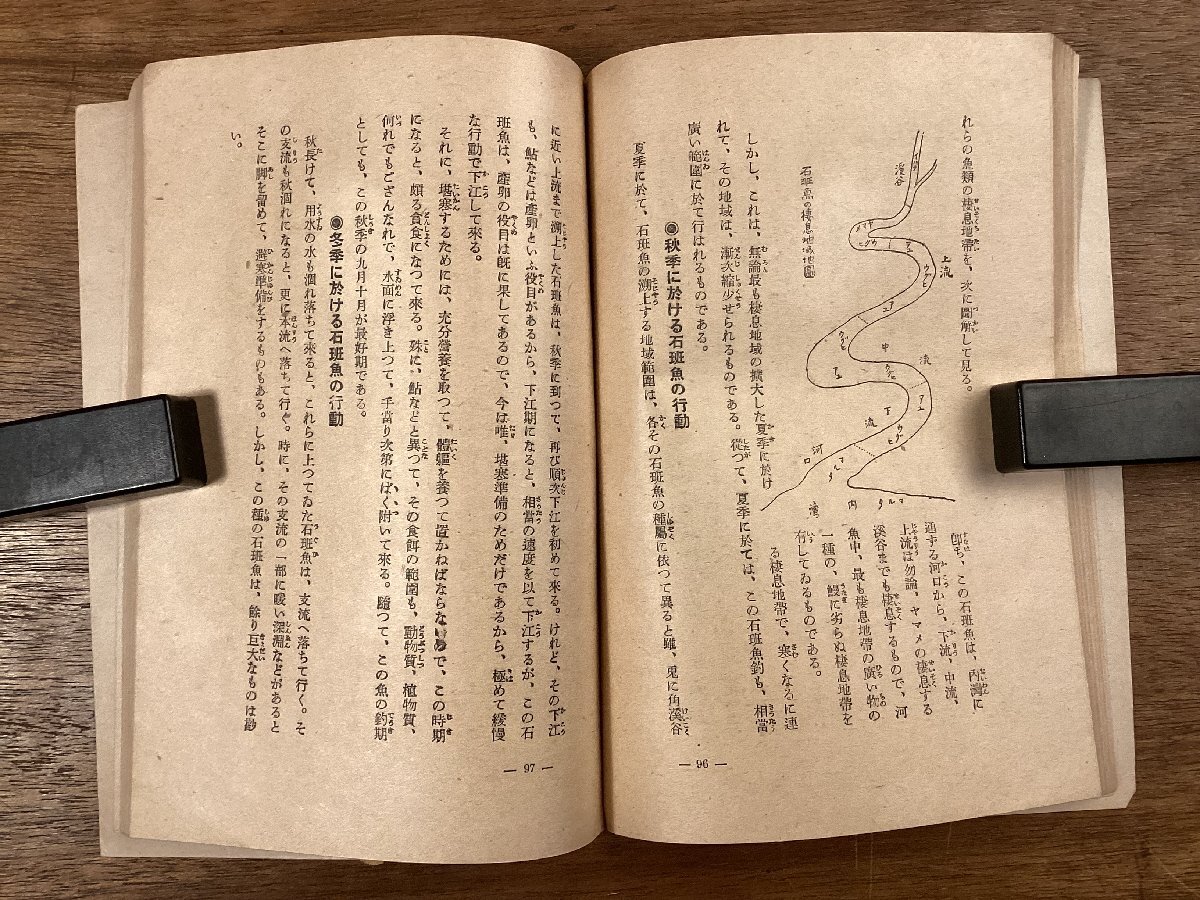 れらの魚類の棲息地帶を、次に圖所して見る。
石斑魚の棲息地帶地圖
溪谷
上流
中
流
下
流
河
口
灣
內
卽ち、この石斑魚は、內灣に
通する河口から、下流、中流、
上流は勿論、ヤマメの棲息する
溪谷までも棲息するもので、河
魚中、最も棲息地帶の廣い物の
一種の、鰻に劣らぬ棲息地帶を
有してゐるものである。
しかし、これは、無論最も棲息地域の擴大した夏季に於け
る棲息地帶で、寒くなるに連
れて、その地域は、漸次縮少せられるものである。從つて、夏季に於ては、この石斑魚釣も、相當
廣い範圍に於て行はれるものである。
◉秋季に於ける石斑魚の行動
夏季に於て、石斑魚の溯上する地域範圍は、各その石斑魚の種屬に依つて異ると雖、兎に角溪谷
— 96 —
に近い上流まで溯上した石斑魚は、秋季に到つて、再び順次下江を初めて來る。けれど、その下江
も、鮎などは產卵といふ役目があるから、下江期になると、相當の速度を以て下江するが、この石
斑魚は、產卵の役目は旣に果してあるので、今は唯、堪寒準備のためだけであるから、極めて緩慢
な行動で下江して來る。
それに、堪寒するためには、充分營養を取つて、體軀を養つて置かねばならないので、この時期
になると、頗る貪食になつて來る。殊に、鮎などと異つて、その食餌の範圍も、動物質、植物質、
何れでもござんなれで、水面に浮き上つて、手當り次第にぱく附いて來る。隨つて、この魚の釣期
としても、この秋季の九月十月が最好期である。
◉冬季に於ける石斑魚の行動
秋長けて、用水の水も涸れ落ちて來ると、これらに上つてゐた石斑魚は、支流へ落ちて行く。そ
の支流も秋涸れになると、更に本流へ落ちて行ぐ。時に、その支流の一部に暖い深淵などがあると
そこに脚を留めて、避寒準備をするものもある。しかし、この種の石斑魚は、餘り巨大なものは尠
い。
— 97 —